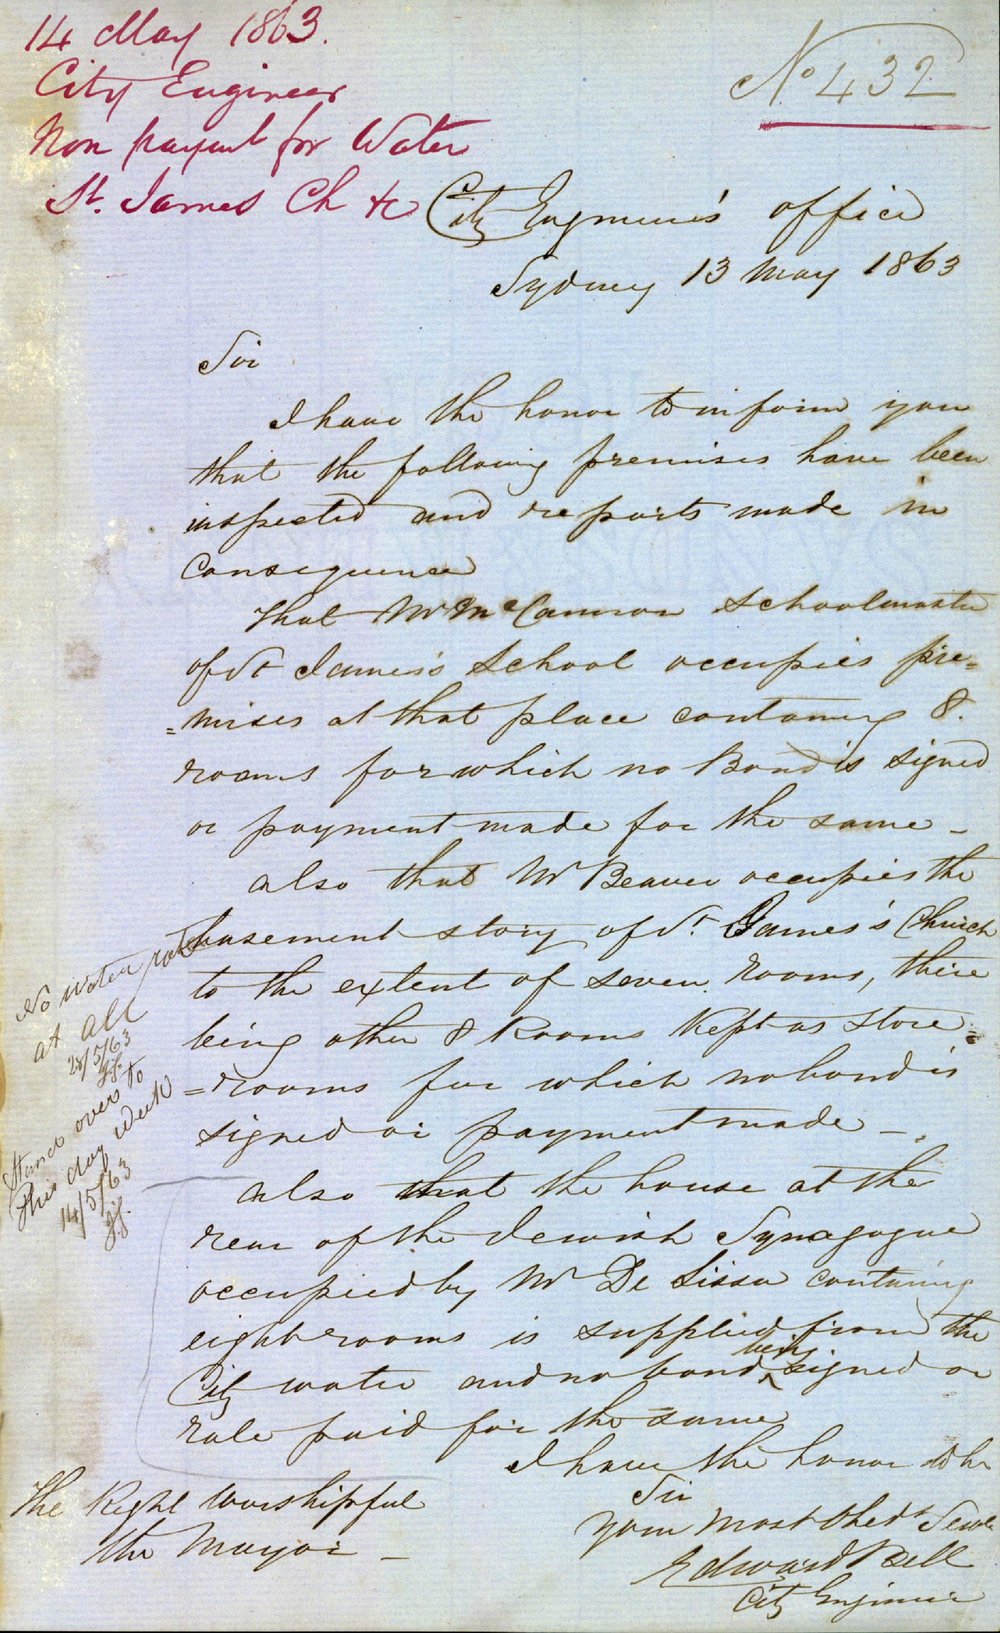 14 May 1863.
City Engineer
Non payment for Water
St. James Ch &c
No 432
City Engineer's office
Sydney 13 May 1863
Sir
I have the honor to inform you
that the following premises have been
inspected and reports made in
Consequence
That Mr McCameron Schoolmaster
of St James's School occupies pre=
=mises at that place containing 8.
rooms for which no Bond is signed
or payment made for the same –
also that Mr Beaver occupies the
basement story of St. James's Church
to the extent of seven rooms, there
being other 8 Rooms Kept as store=
=rooms for which no bond is
signed or payment made –.
also that the house at the
rear of the Jewish Synagogue
occupied by Mr De Lissa containing
eight rooms is supplied from the
City water and no bond being signed or
rate paid for the same
I have the honor to be
Sir
Your most Obedt Servt
Edward Bell
City Engineer
The Right Worshipful
the Mayor –
No water rate
at all
28/5/63
Stand over to
this day week
14/5/63